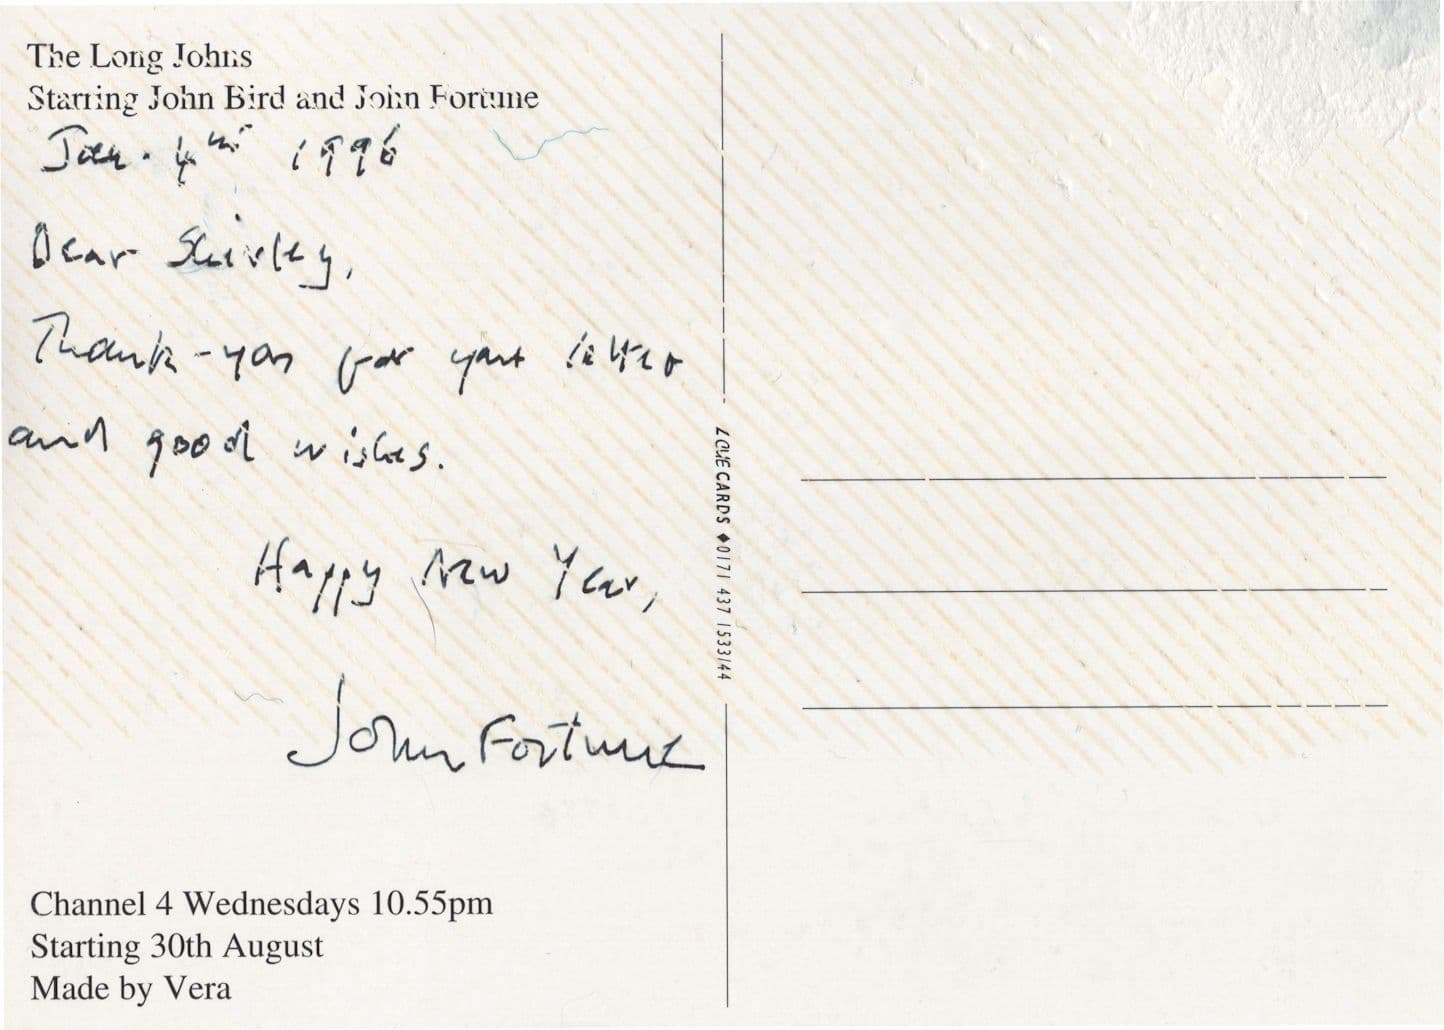 The Long Johns
Starring John Bird and John Fortune
Jan. 4th 1996
Dear Shirley,
Thank-you for your letter
and good wishes.
Happy New Year,
John Fortune
Channel 4 Wednesdays 10.55pm
Starting 30th August
Made by Vera
LOVECARDS ◆0171 437 1533/44